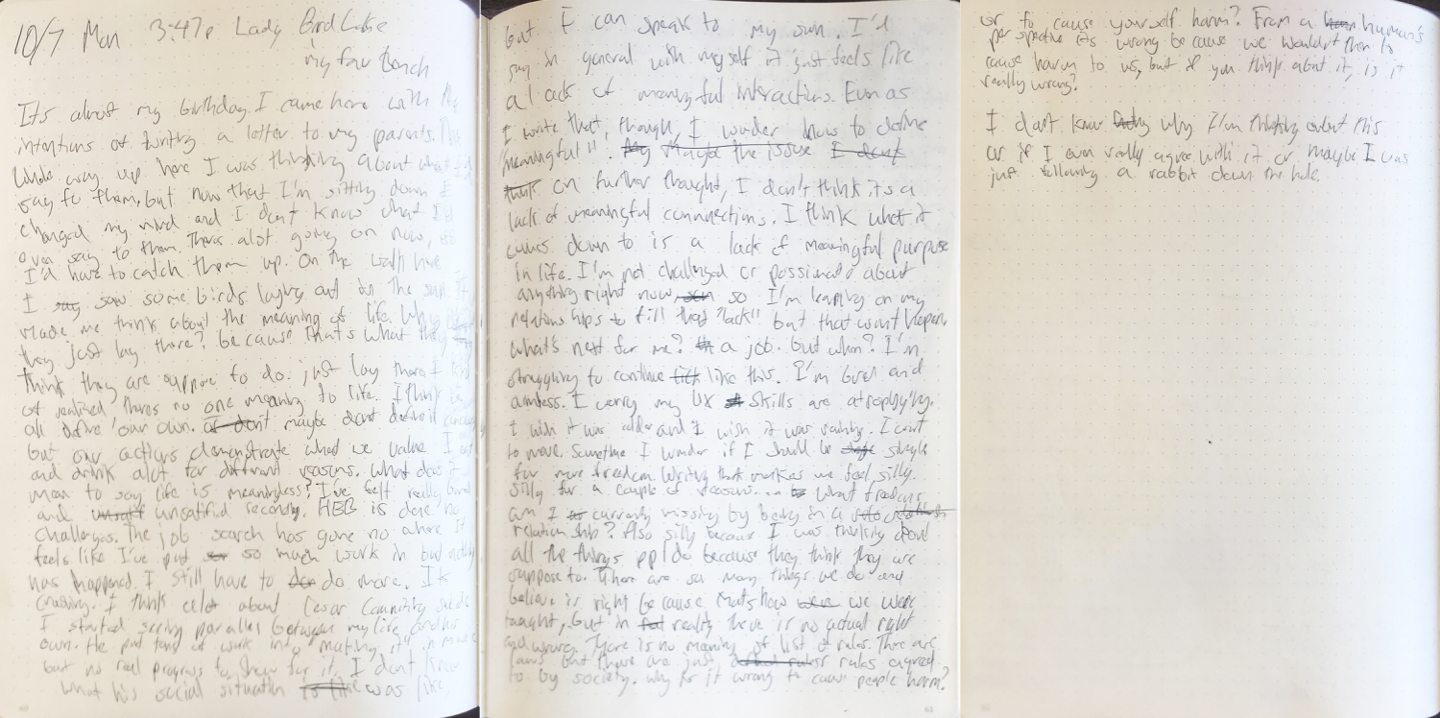 10/7 Mon 3:47p Lady Bird Lake
my fav Bench
It's almost my birthday. I came here with the
intentions of writing a letter to my parents. The
whole way up here I was thinking about what I'd
say to them, but now that I'm sitting down I
changed my mind and I don't know what I'd
even say to them. Theres alot going on now,
I'd have to catch them up. On the walk here
I say saw some birds laying out in the sun. It
made me think about the meaning of life. Why
they just lay there? because that's what they
think they are suppose to do. just lay there. I kind
of realized theres no one meaning to life. I think we
all define our own. or dont maybe dont define it
but our actions demonstrate what we value. I eat
and drink alot for different reasons. What does it
mean to say life is meaningless? I've felt really bored
and unsatif unsatified recently. HEB is done no
challenges. The job search has gone no where. It
feels like I've put so much work in but nothing
has happened. I still have to do more. Its
crushing. I think alot about Cesar committing suicide
I started seeing parallels between my life and his
own. He put tons of work into "making it" in music
but no real progress to show for it. I dont know
what his social situation is like was like,
but I can speak to my own. I'd
say in general with myself it just feels like
a lack of meaningful interactions. Even as
I write that, though, I wonder how to define
"meaningful". My Maybe the issue I dont
think on further thought, I don't think its a
lack of meaningful connections. I think what it
comes down to is a lack of meaningful purpose
in life. I'm not challenged or passionate about
anything right now so I'm leaning on my
relationships to fill that "lack" but that wont happen.
what's next for me? a job. but when? I'm
struggling to continue like this. I'm bored and
aimless. I worry my UX skills are atrophying.
I wish it was colder and I wish it was rainy. I want
to move. Sometime I wonder if I should be single
for more freedom. Writing that makes me feel silly.
Silly for a couple of reasons... what freedoms
am I currently missing by being in a
relationship? Also silly because I was thinking about
all the things ppl do because they think they are
suppose to. There are so many things we do and
believe is right because thats how were we were
taught, but in reality there is no actual right
and wrong. There is no meaning of list of rules. There are
laws but those are just rules agreed
to by society. why is it wrong to cause people harm?
or to cause yourself harm? From a human's
perspective its wrong because we wouldnt them to
cause harm to us, but if you think about it, is it
really wrong?
I dont know why I'm thinking about this
or if I even really agree with it or maybe I was
just following a rabbit down the hole.